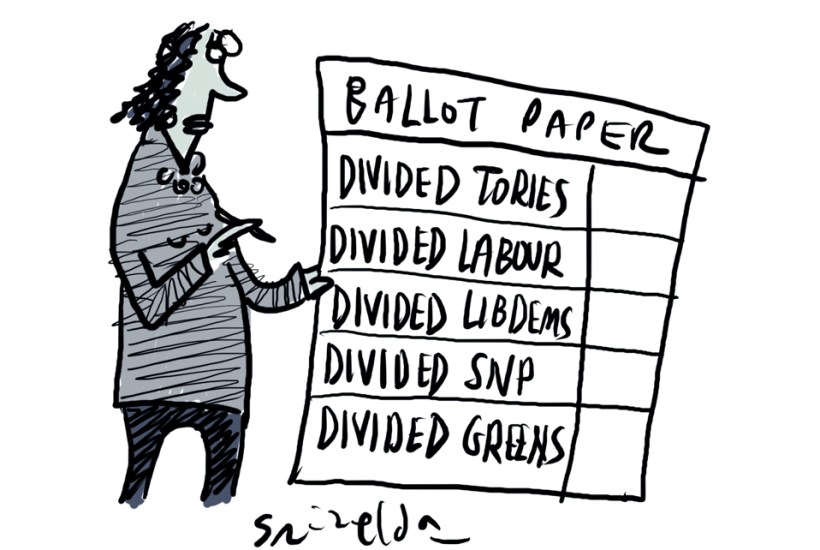 BALLOT PAPER
DIVIDED TORIES
DIVIDED LABOUR
DIVIDED LIBDEMS
DIVIDED SNP
DIVIDED GREENS
Grizelda